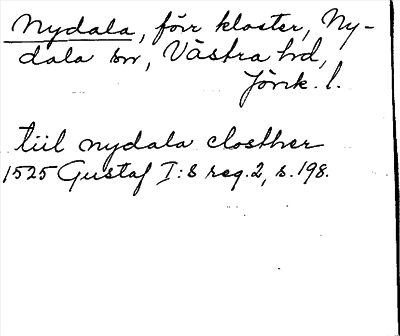 Nydala, förr kloster, Ny-
dala sn, Västra hd,
Jönk. l.
tiil nydala closther
1525 Gustaf I:s reg. 2, s. 198.